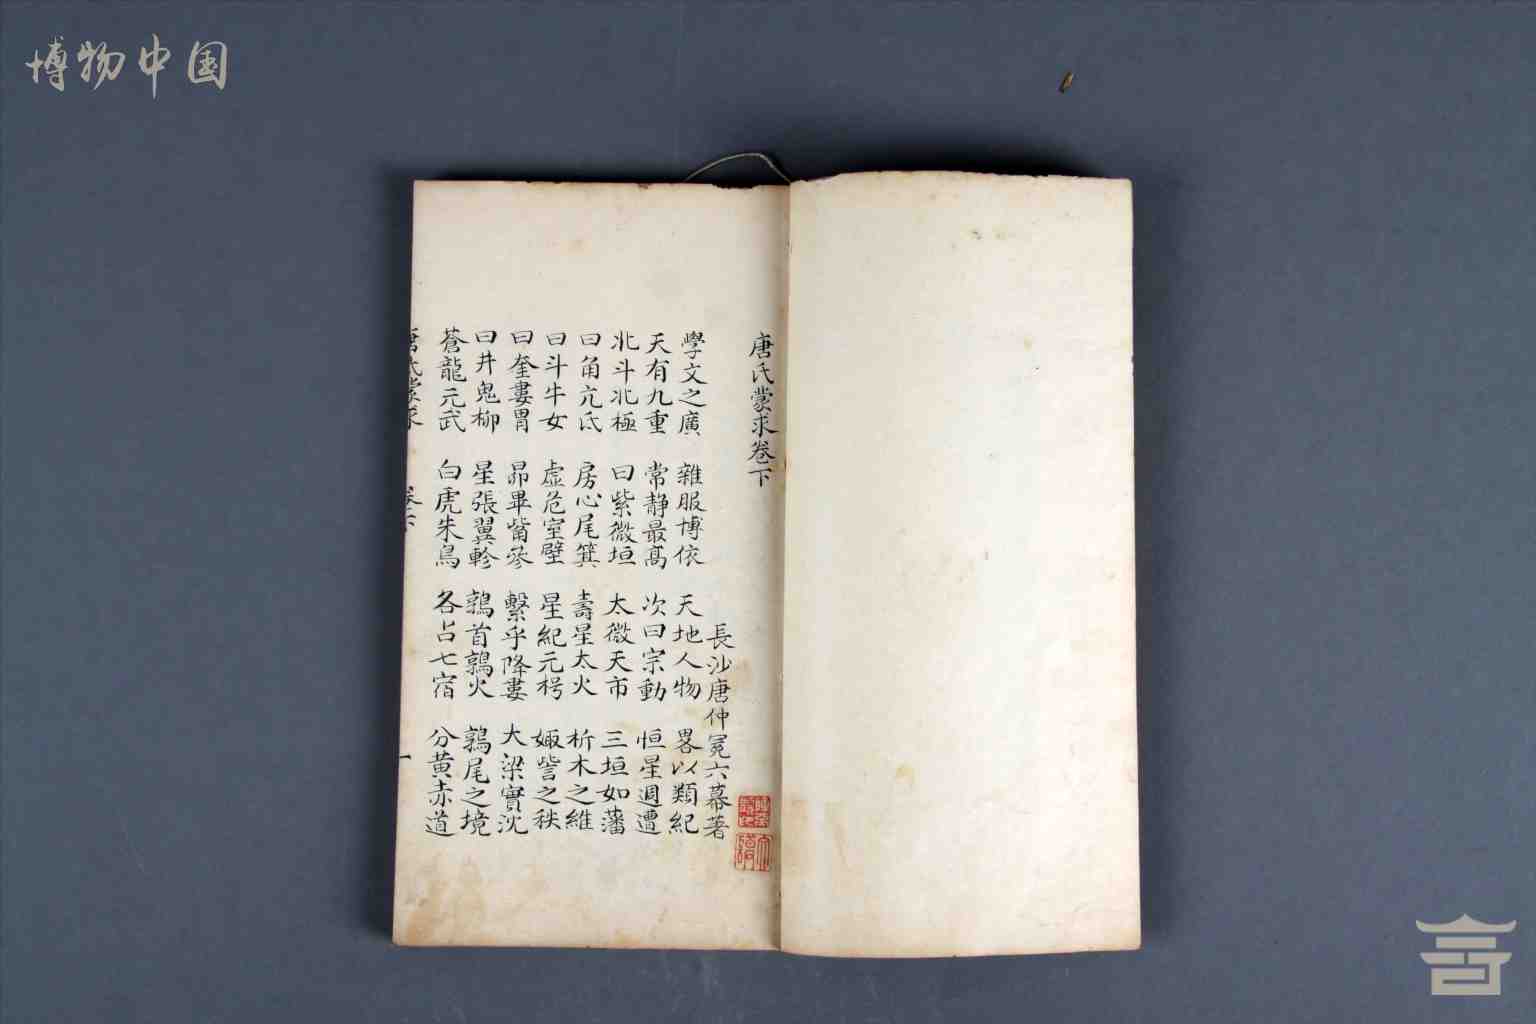 博物中国
唐氏蒙求卷下
長沙唐仲冕六幕著
學文之廣 雜服博依 天地人物 畧以類紀
天有九重 常静最高 次曰宗動 恒星週遭
北斗北極 曰紫微垣 太微天市 三垣如藩
曰角亢氐 房心尾箕 壽星大火 析木之維
曰斗牛女 虛危室壁 星紀元枵 娵訾之秩
曰奎婁胃 昴畢觜參 繫乎降婁 大梁實沈
曰井鬼柳 星張翼軫 鶉首鶉火 鶉尾之境
蒼龍元武 白虎朱鳥 各占七宿 分黃赤道
唐氏蒙求 卷下 一